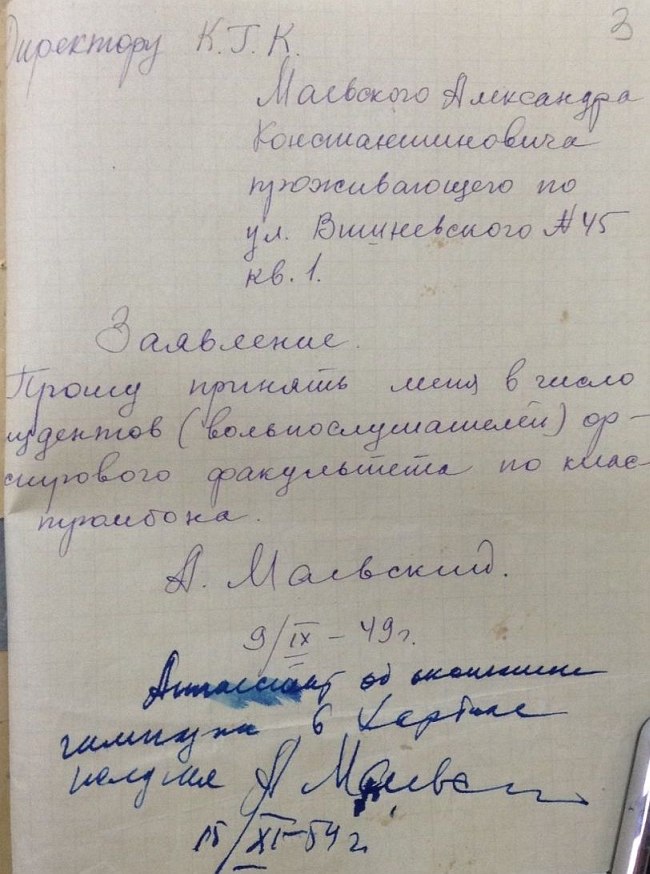 3
Директору К.Г.К.
Маевского Александра
Константиновича
проживающего по
ул. Вишневского №45
кв. 1.
Заявление.
Прошу принять меня в число
удентов (вольнослушателей) ор-
стрового факультета по клас
тромбона.
А. Маевский.
9/IX – 49 г.
Аттестат об окончании
гимназии в Харбине
получил А Маевс
15/XI–54 г.